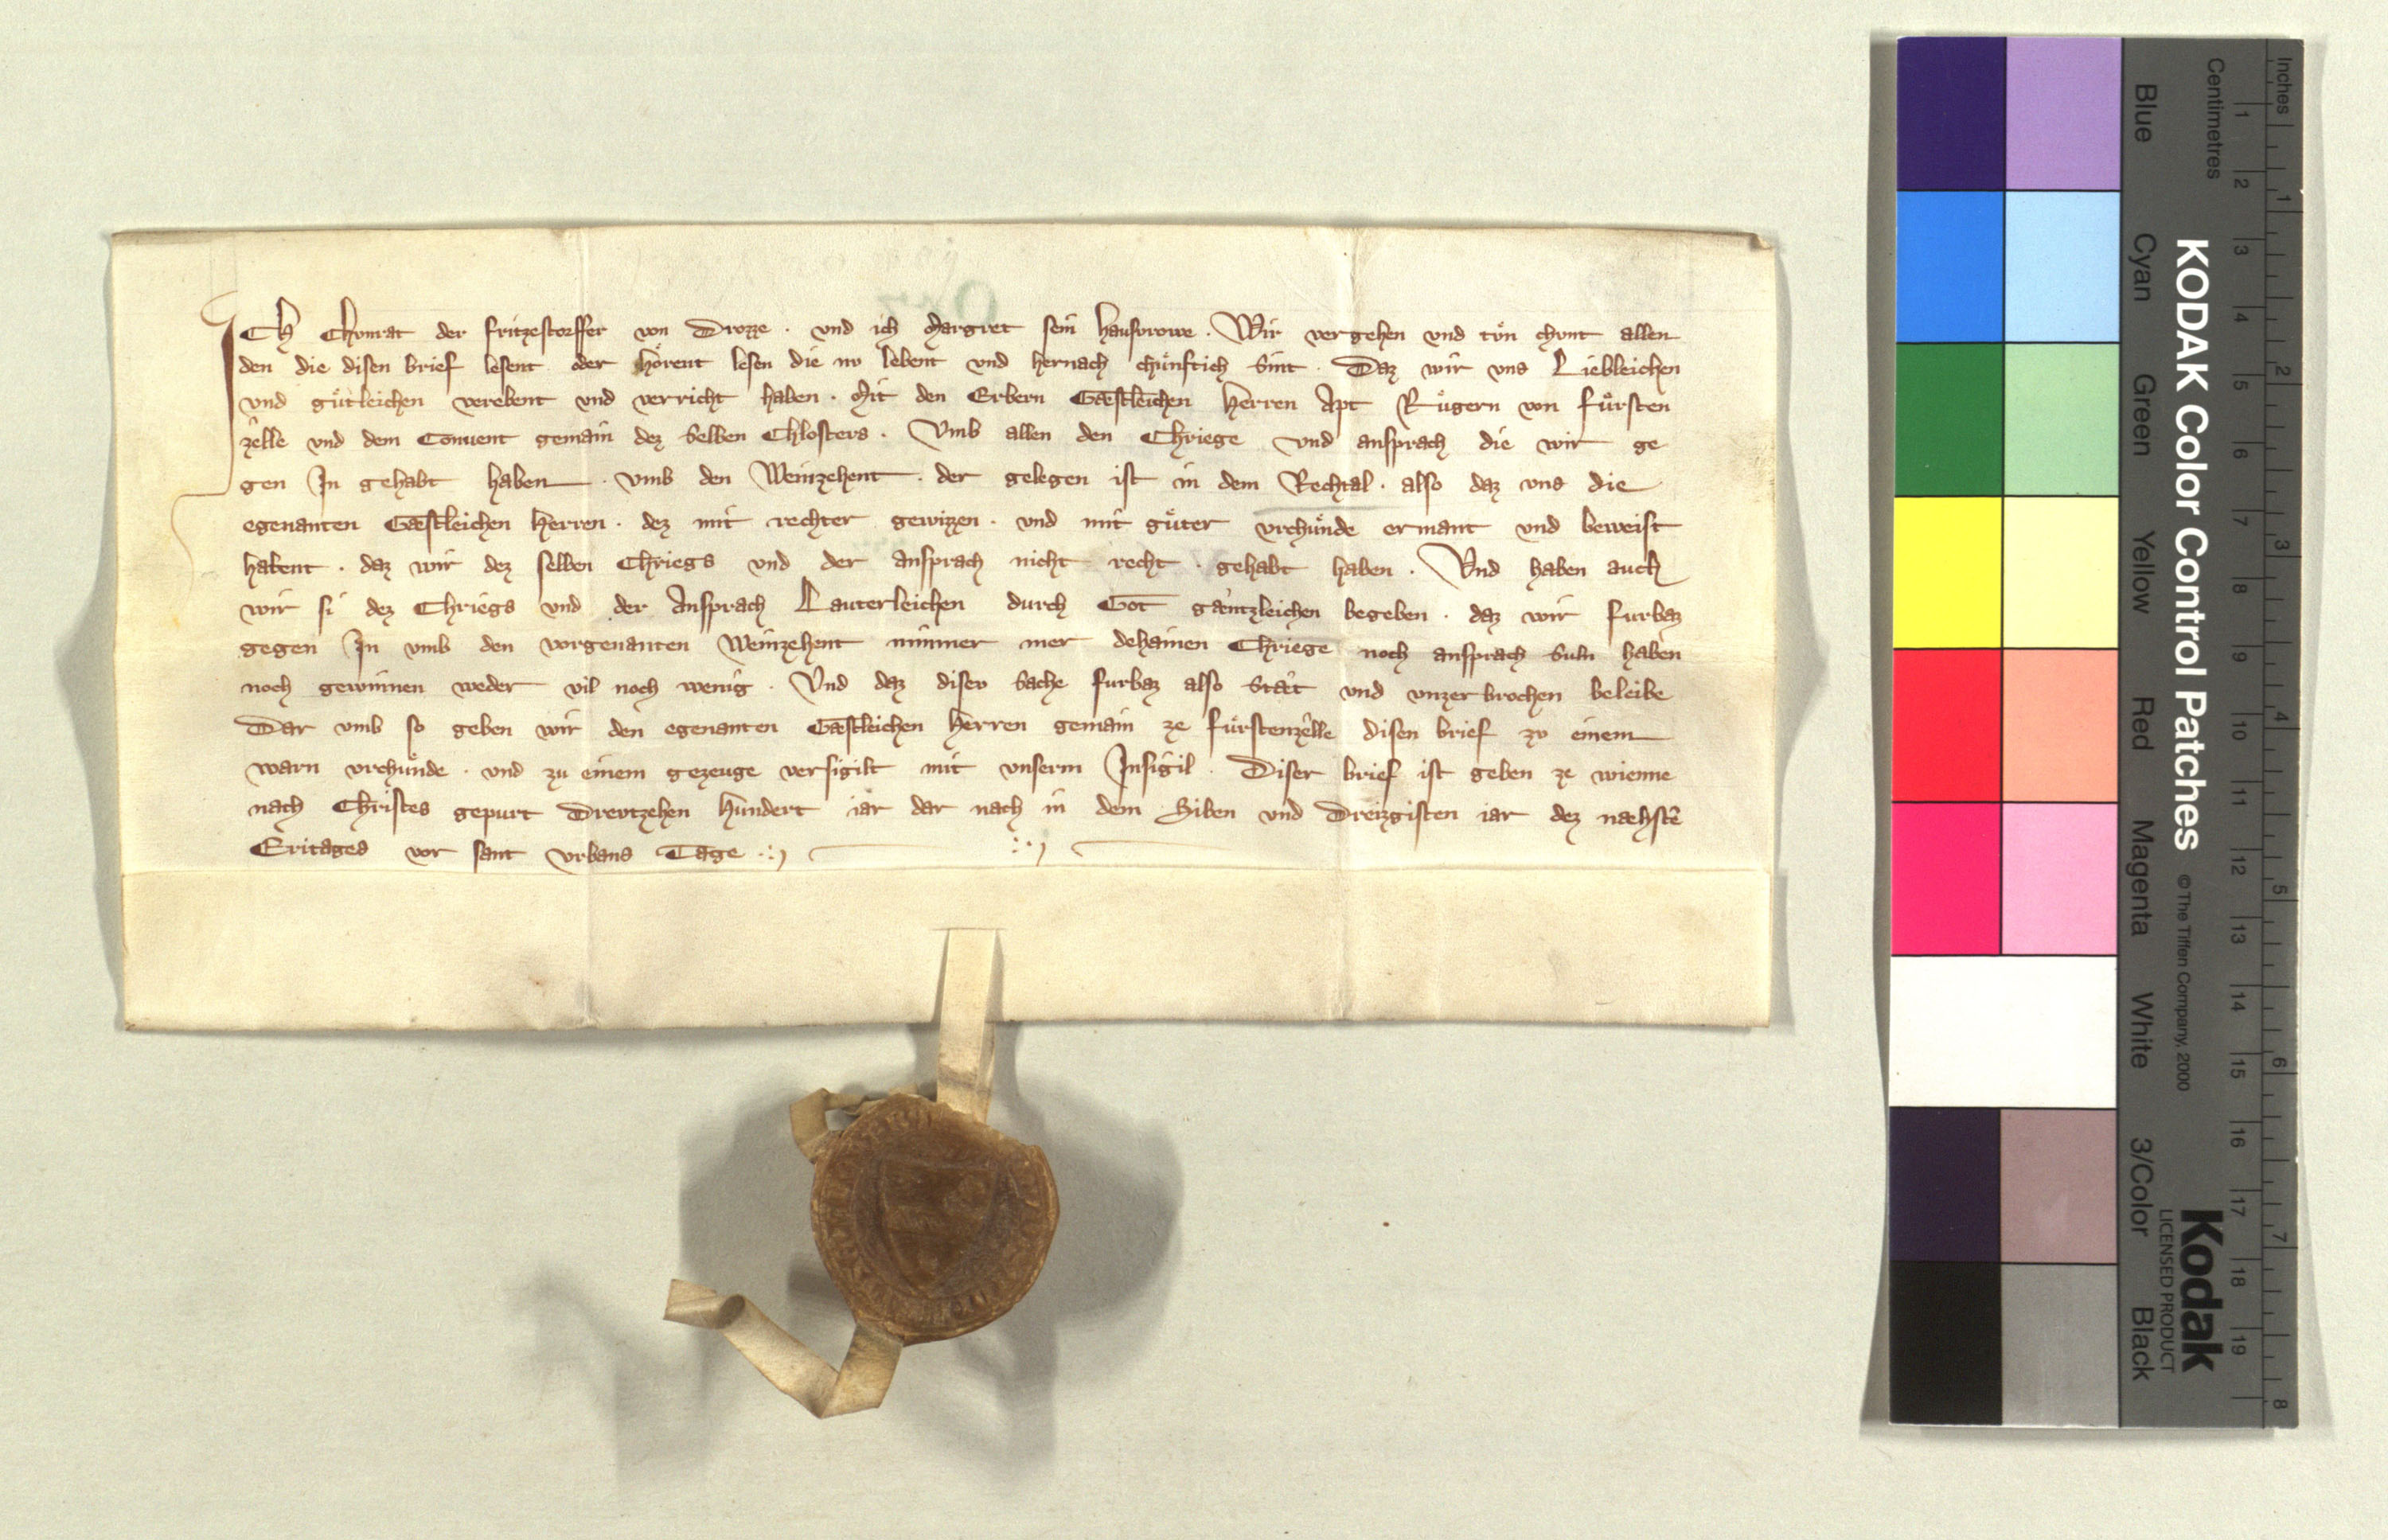 Ich Chvnrat der fritzestorffer von Drozze · vnd ich Margret sein hausvrowe · Wir vergehen vnd tuͦn chvnt allen
den die disen brief lesent oder hoͤrent lesen die nv lebent vnd hernach chuͤnftich sint · Daz wir vns Liebleichen
vnd guͤtleichen verebent vnd verricht haben · Mit den Erbern Gæstleichen Herren Apt Ruͤgern von fuͤrsten
zelle vnd dem Conuent gemain dez selben Chlosters · Vmb allen den Chriege vnd ansprach die wir ge
gen In gehabt haben · vmb den Weinzehent · der gelegen ist in dem Rechtal · also daz vns die
egenanten Gæstleichen Herren · dez mit rechter gewizzen · vnd mit guͤter vrchuͤnde ermant vnd beweist
habent · daz wir dez selben Chriegs vnd der ansprach nicht recht · gehabt haben · Vnd haben auch
wir si dez Chriegs vnd der Ansprach Lauterleichen durch Got gæntzleichen begeben · daz wir furbaz
gegen In vmb den vorgenanten Weinzehent nimmer mer dehainen Chriege noch ansprach suln haben
noch gewinnen weder vil noch wenig · Vnd daz disev sache furbaz also stæt vnd vnzerbrochen beleibe
Dar vmb so geben wir den egenanten Gæstleichen Herren gemain ze fuͤrstenzelle disen brief zv einem
warn vrchuͤnde · vnd zu einem gezeuge versigilt mit vnserm Insigil · Diser brief ist geben ze wienne
nach Christes gepurt Drevtzehen Hundert iar dar nach in dem Siben vnd Dreizgisten iar dez næhstē
Eritages vor sant vrbans Tage
Inches
Centimetres
1 2 3 4 5 6 7 8
1 2 3 4 5 6 7 8 9 10 11 12 13 14 15 16 17 18 19
KODAK Color Control Patches ©The Tiffen Company, 2000
Kodak
LICENSED PRODUCT
Blue Cyan Green Yellow Red Magenta White 3/Color Black